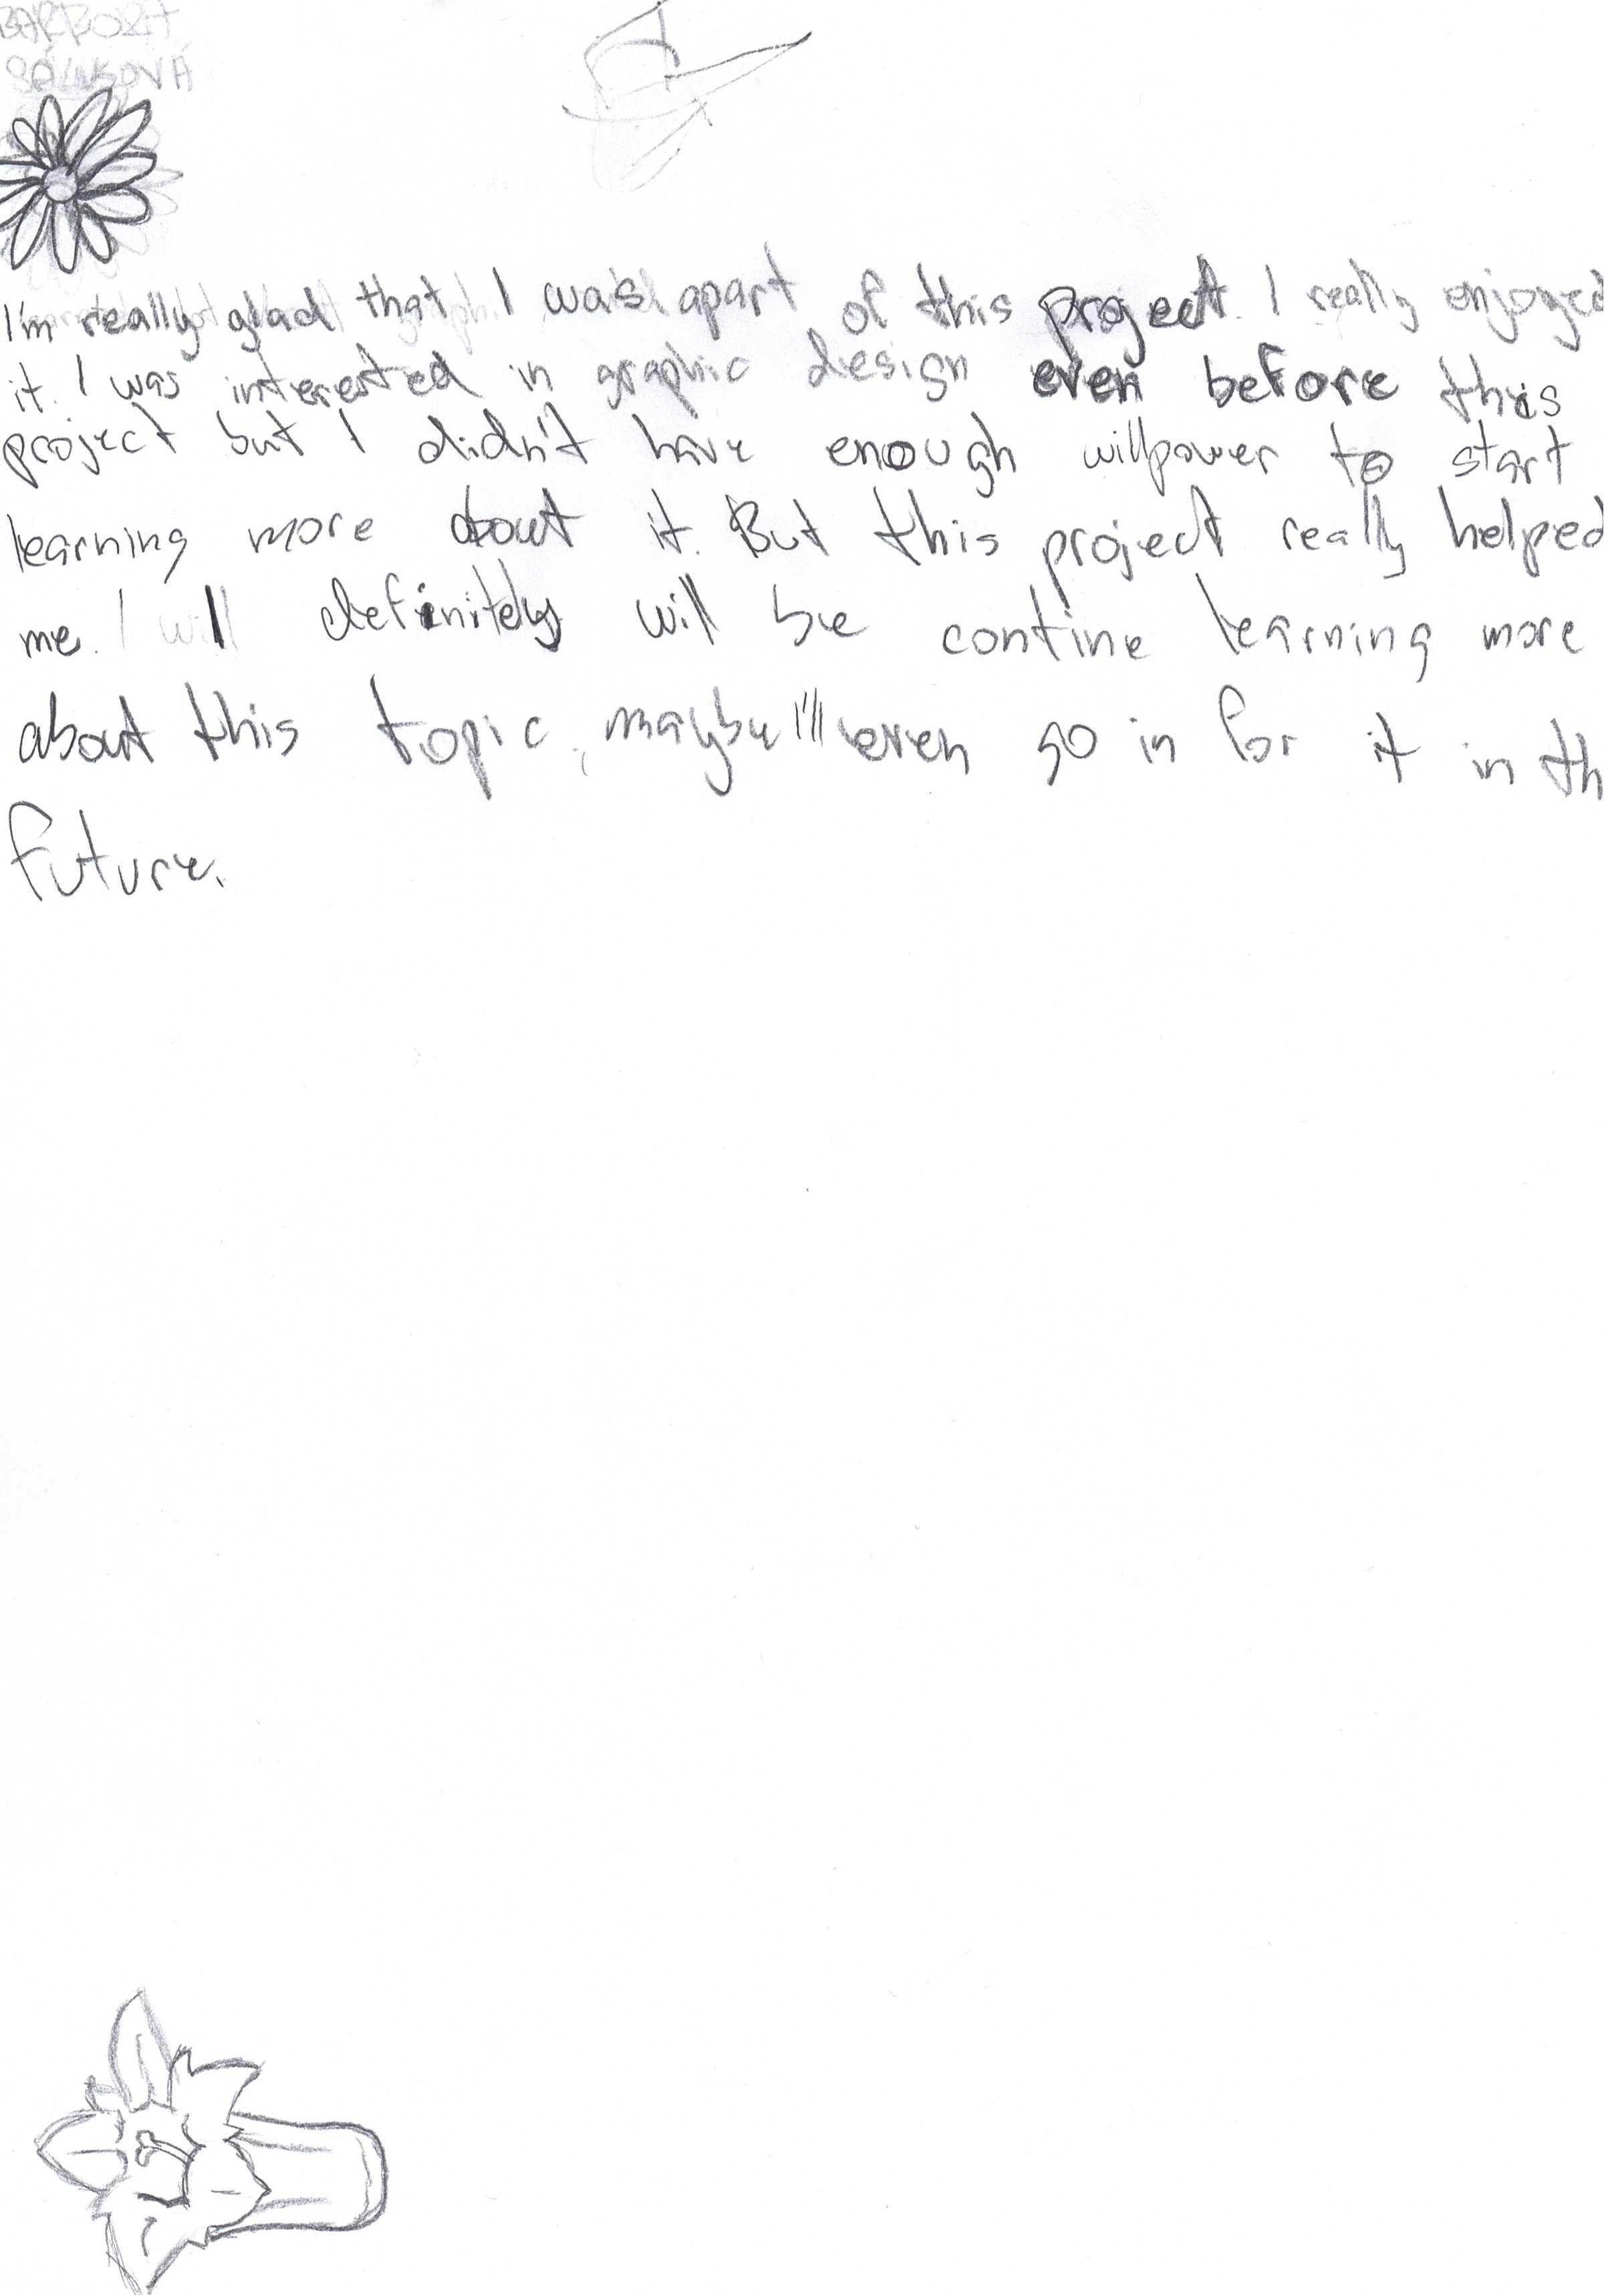 BARBORA
I'm really glad that I was apart of this project. I really enjoyed
it. I was interested in graphic design even before this
project but I didn't have enough willpower to start
learning more about it. But this project really helped
me. I will definitely will be contine learning more
about this topic, maybe I'll even go in for it in th
future.